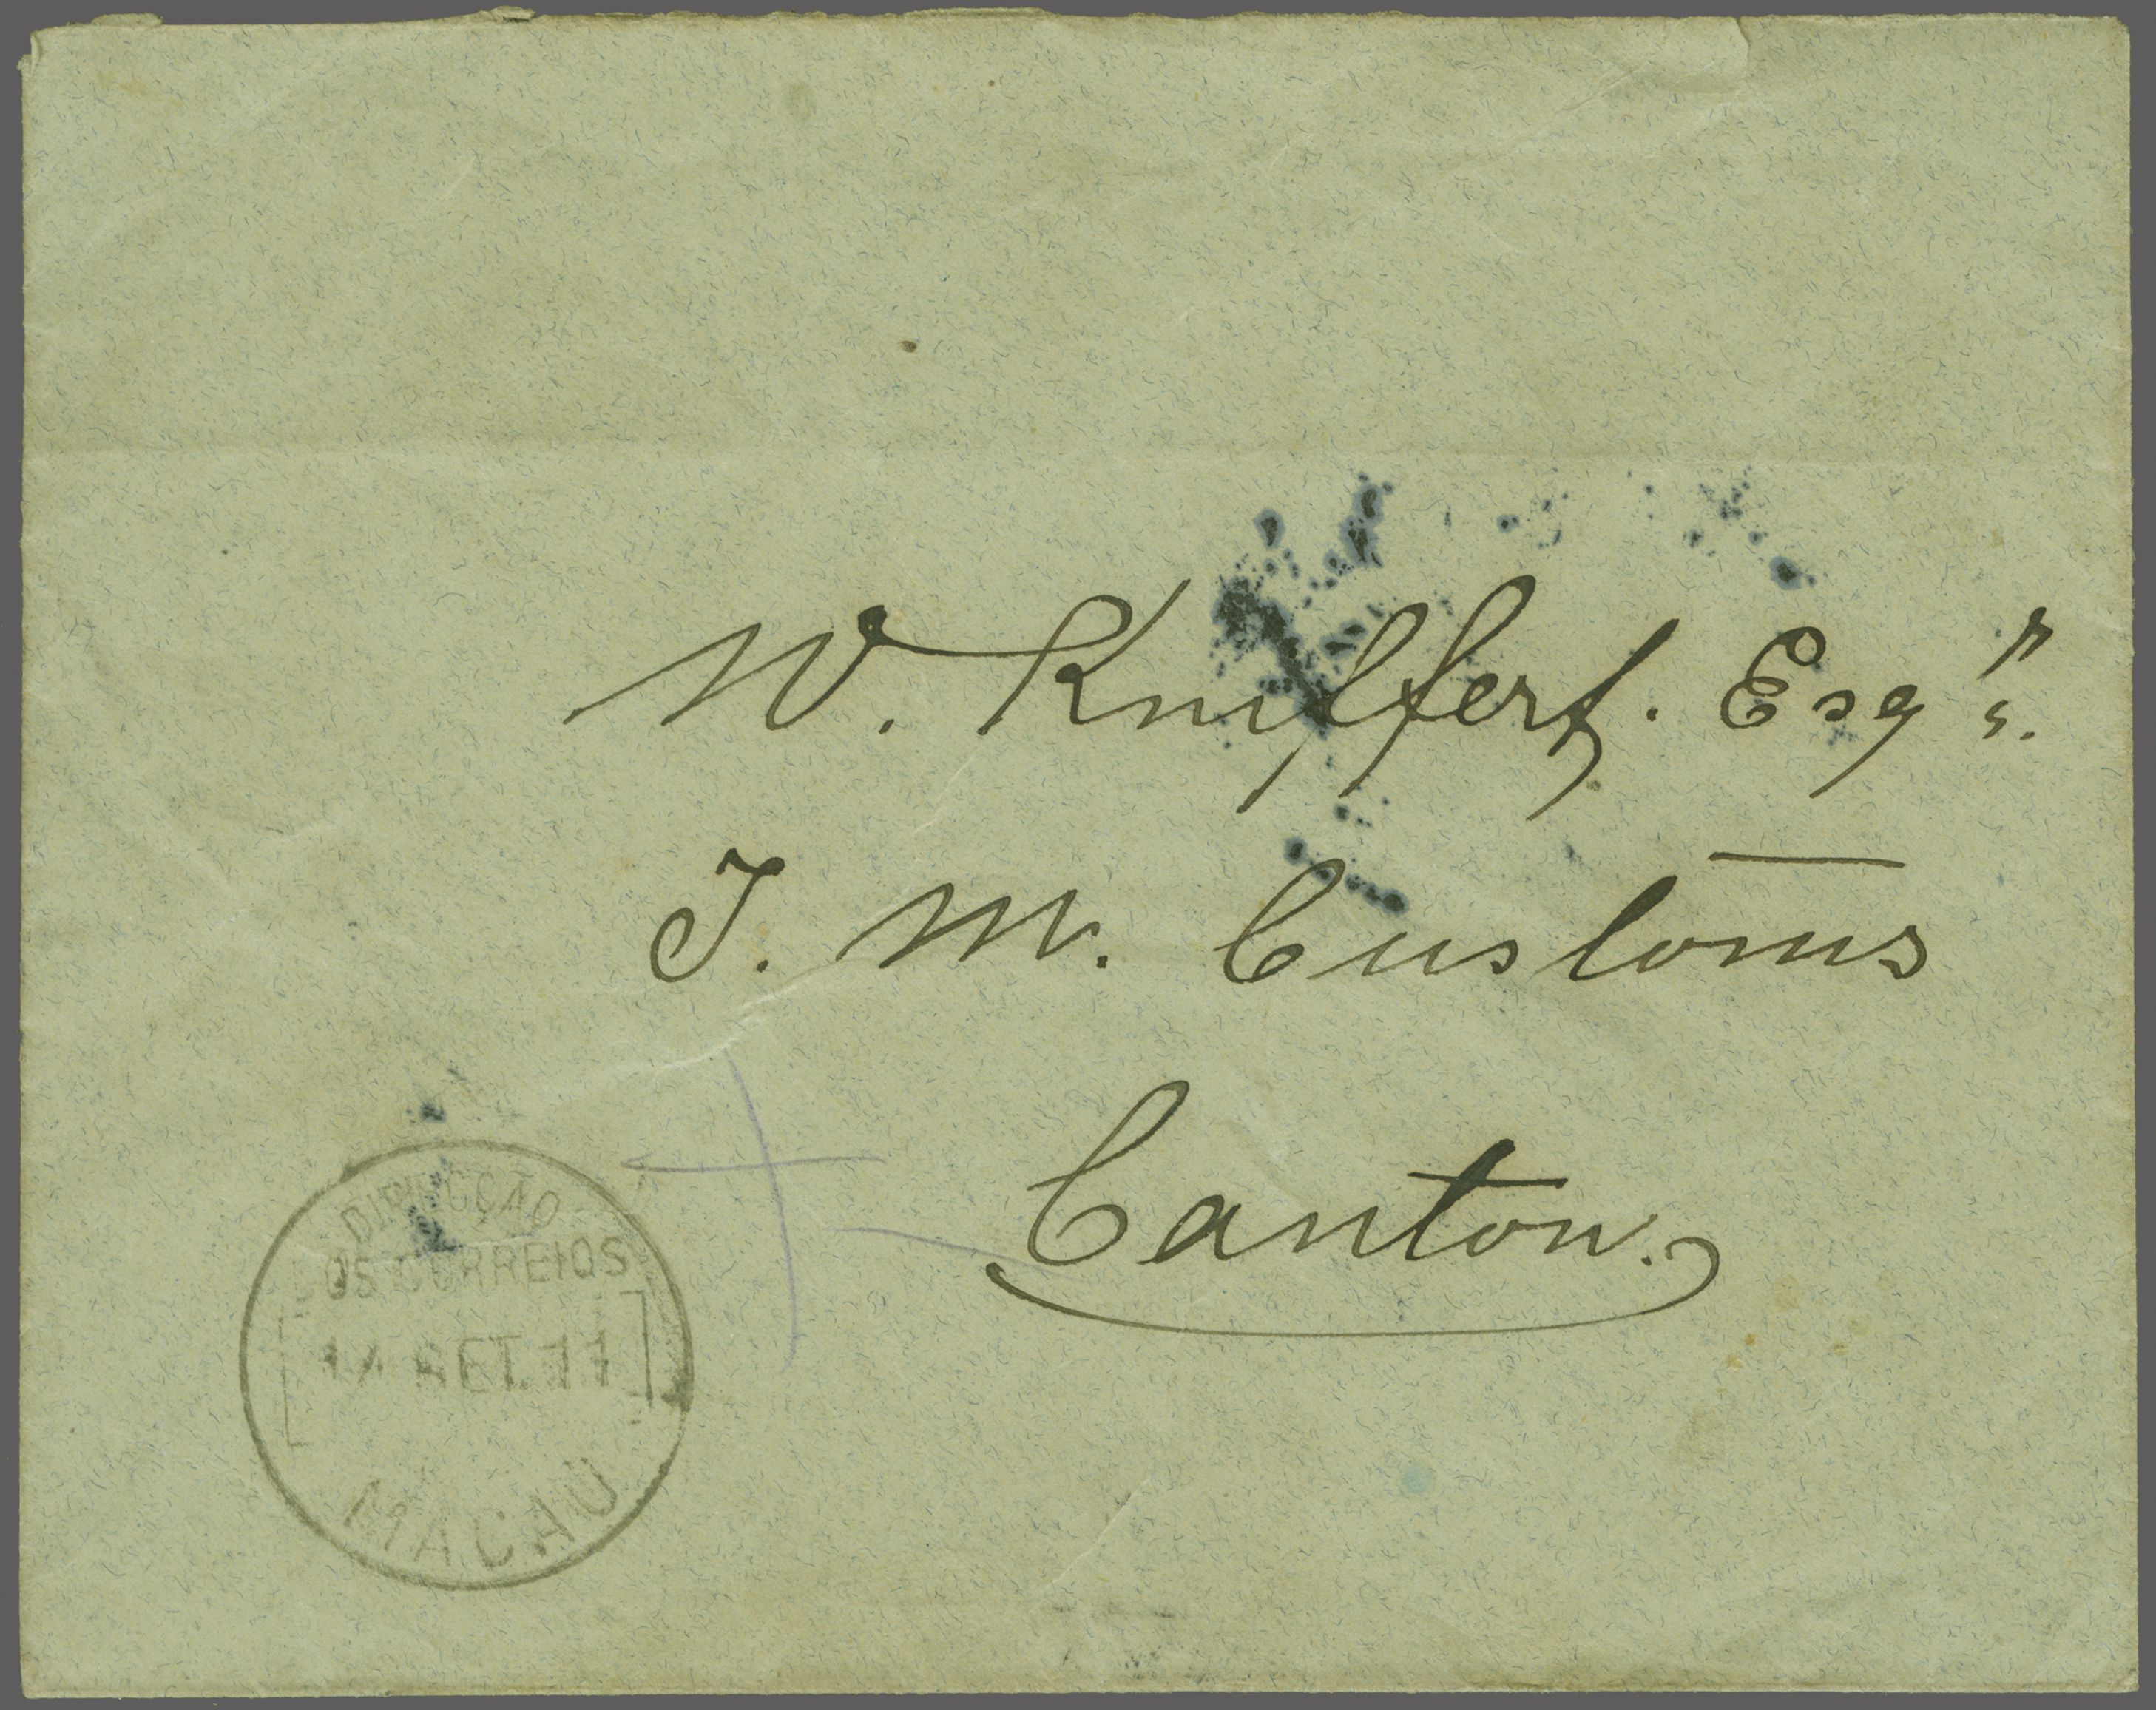 W. Knipffert. Esqr.
I. M. Customs
Canton.
DIRECÇÃO
DOS CORREIOS
SET. 11
MACAU